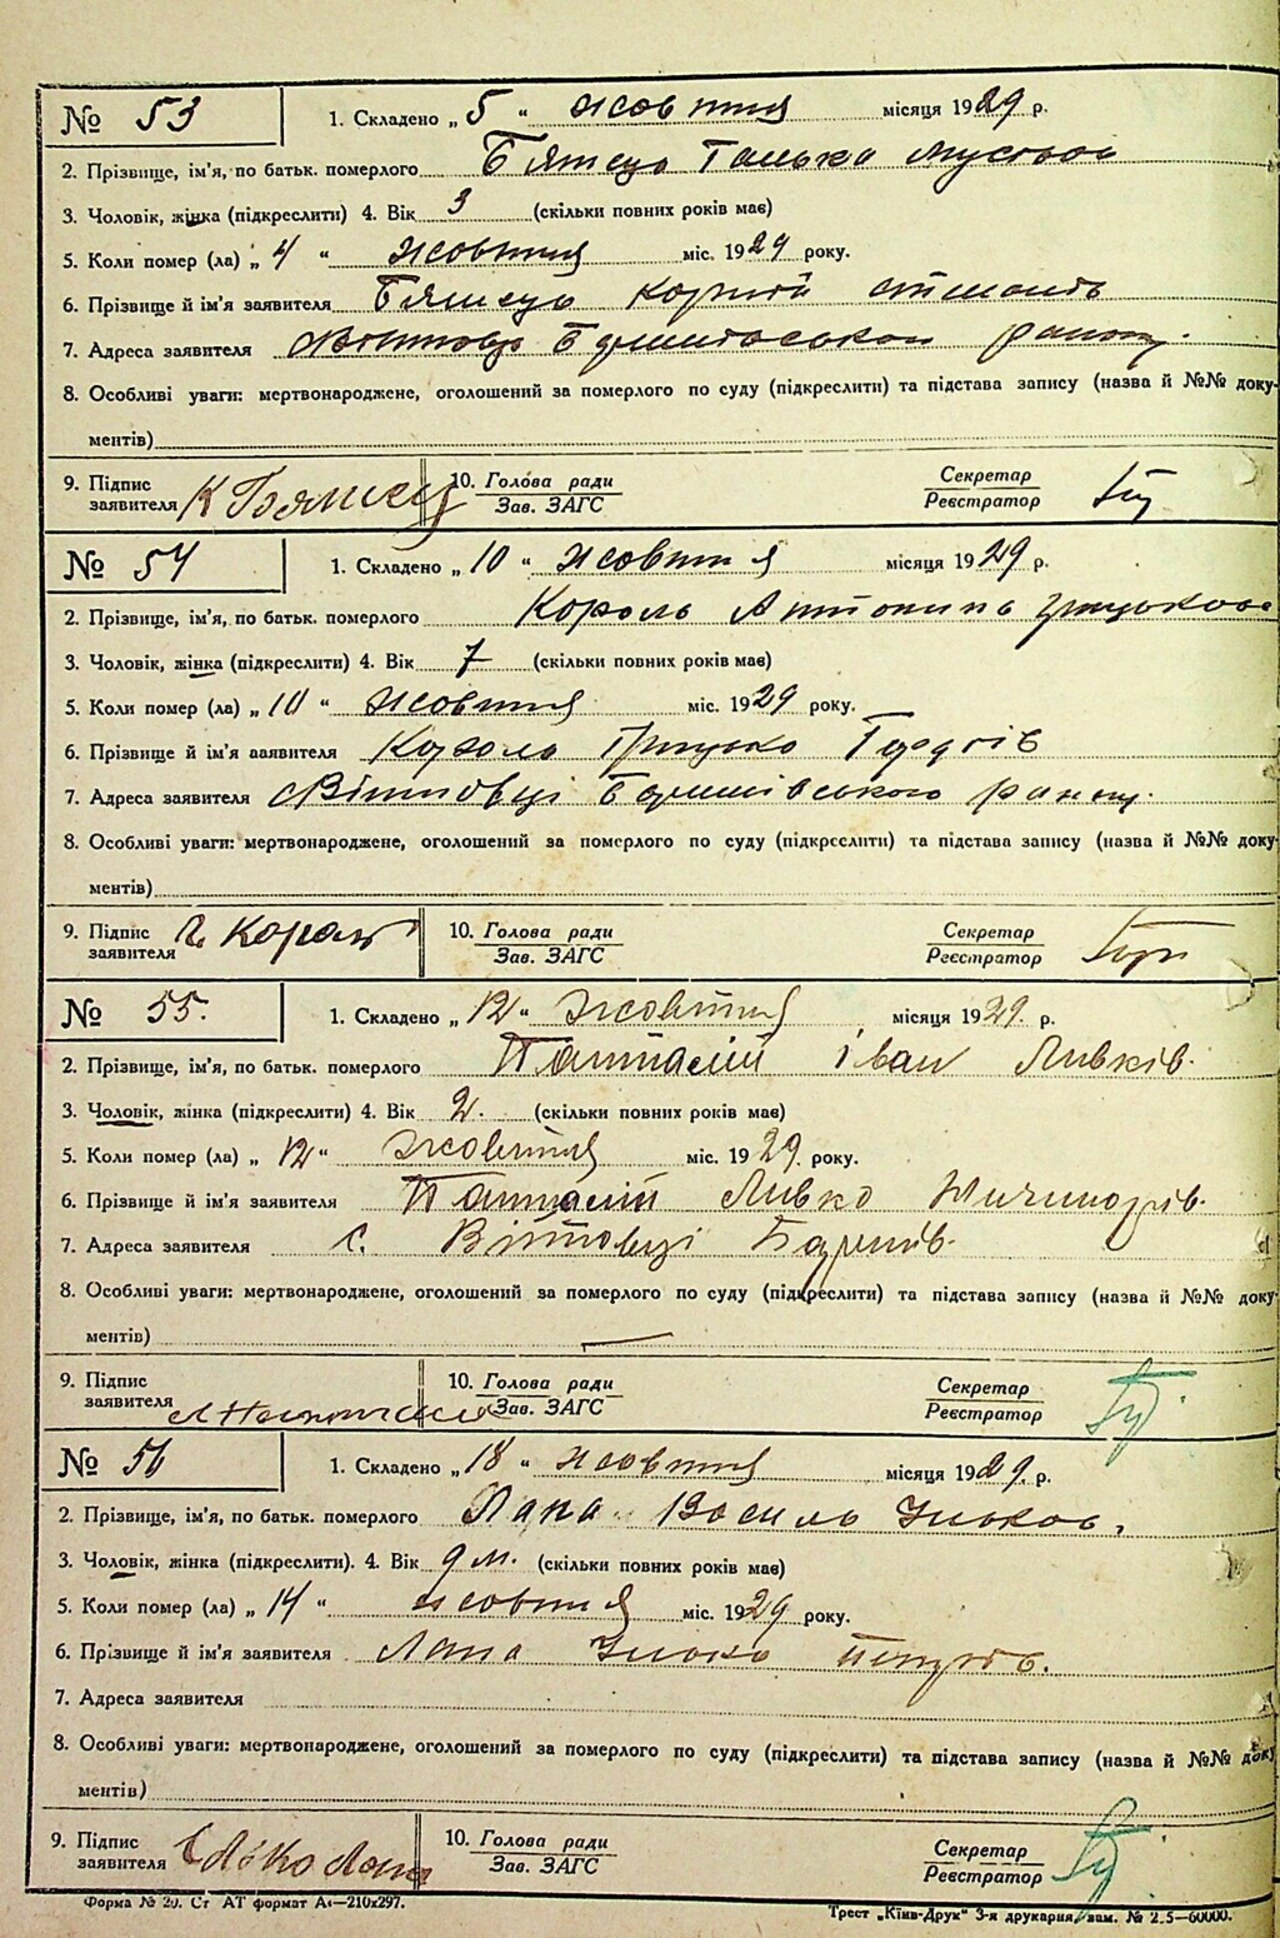 № 53
1. Складено „ 5 " жовтня місяця 1929 р.
2. Прізвище, ім'я, по батьк. померлого
3. Чоловік, жінка (підкреслити) 4. Вік 3 (скільки повних років має)
5. Коли помер (ла) „ 4 " жовтня міс. 1929 року.
6. Прізвище й ім'я заявителя Корній
7. Адреса заявителя
8. Особливі уваги: мертвонароджене, оголошений за померлого по суду (підкреслити) та підстава запису (назва й №№ доку-
ментів)
9. Підпис заявителя К 10. Голова ради Зав. ЗАГС Секретар Реєстратор
№ 54
1. Складено „ 10 " жовтня місяця 1929 р.
2. Прізвище, ім'я, по батьк. померлого Король Антонина
3. Чоловік, жінка (підкреслити) 4. Вік 7 (скільки повних років має)
5. Коли помер (ла) „ 10 " жовтня міс. 1929 року.
6. Прізвище й ім'я заявителя Король Грицько
7. Адреса заявителя Війтовці Баришівського району.
8. Особливі уваги: мертвонароджене, оголошений за померлого по суду (підкреслити) та підстава запису (назва й №№ доку-
ментів)
9. Підпис заявителя Г Король 10. Голова ради Зав. ЗАГС Секретар Реєстратор
№ 55.
1. Складено „ 12 " жовтня місяця 1929. р.
2. Прізвище, ім'я, по батьк. померлого Іван Левків.
3. Чоловік, жінка (підкреслити) 4. Вік 2. (скільки повних років має)
5. Коли помер (ла) „ 12 " жовтня міс. 1929. року.
6. Прізвище й ім'я заявителя Левко
7. Адреса заявителя с. Війтовці Баришів.
8. Особливі уваги: мертвонароджене, оголошений за померлого по суду (підкреслити) та підстава запису (назва й №№ доку-
ментів) —
9. Підпис заявителя 10. Голова ради Зав. ЗАГС Секретар Реєстратор
№ 56
1. Складено „ 18 " жовтня місяця 1929. р.
2. Прізвище, ім'я, по батьк. померлого Лапа Василь
3. Чоловік, жінка (підкреслити). 4. Вік 9 м. (скільки повних років має)
5. Коли помер (ла) „ 14 " жовтня міс. 1929 року.
6. Прізвище й ім'я заявителя Лапа
7. Адреса заявителя
8. Особливі уваги: мертвонароджене, оголошений за померлого по суду (підкреслити) та підстава запису (назва й №№ доку-
ментів)
9. Підпис заявителя Лапа 10. Голова ради Зав. ЗАГС Секретар Реєстратор
Форма № 20. Ст АТ формат А4—210х297.
Трест „Київ-Друк" 3-я друкарня, зам. № 2.5—60000.